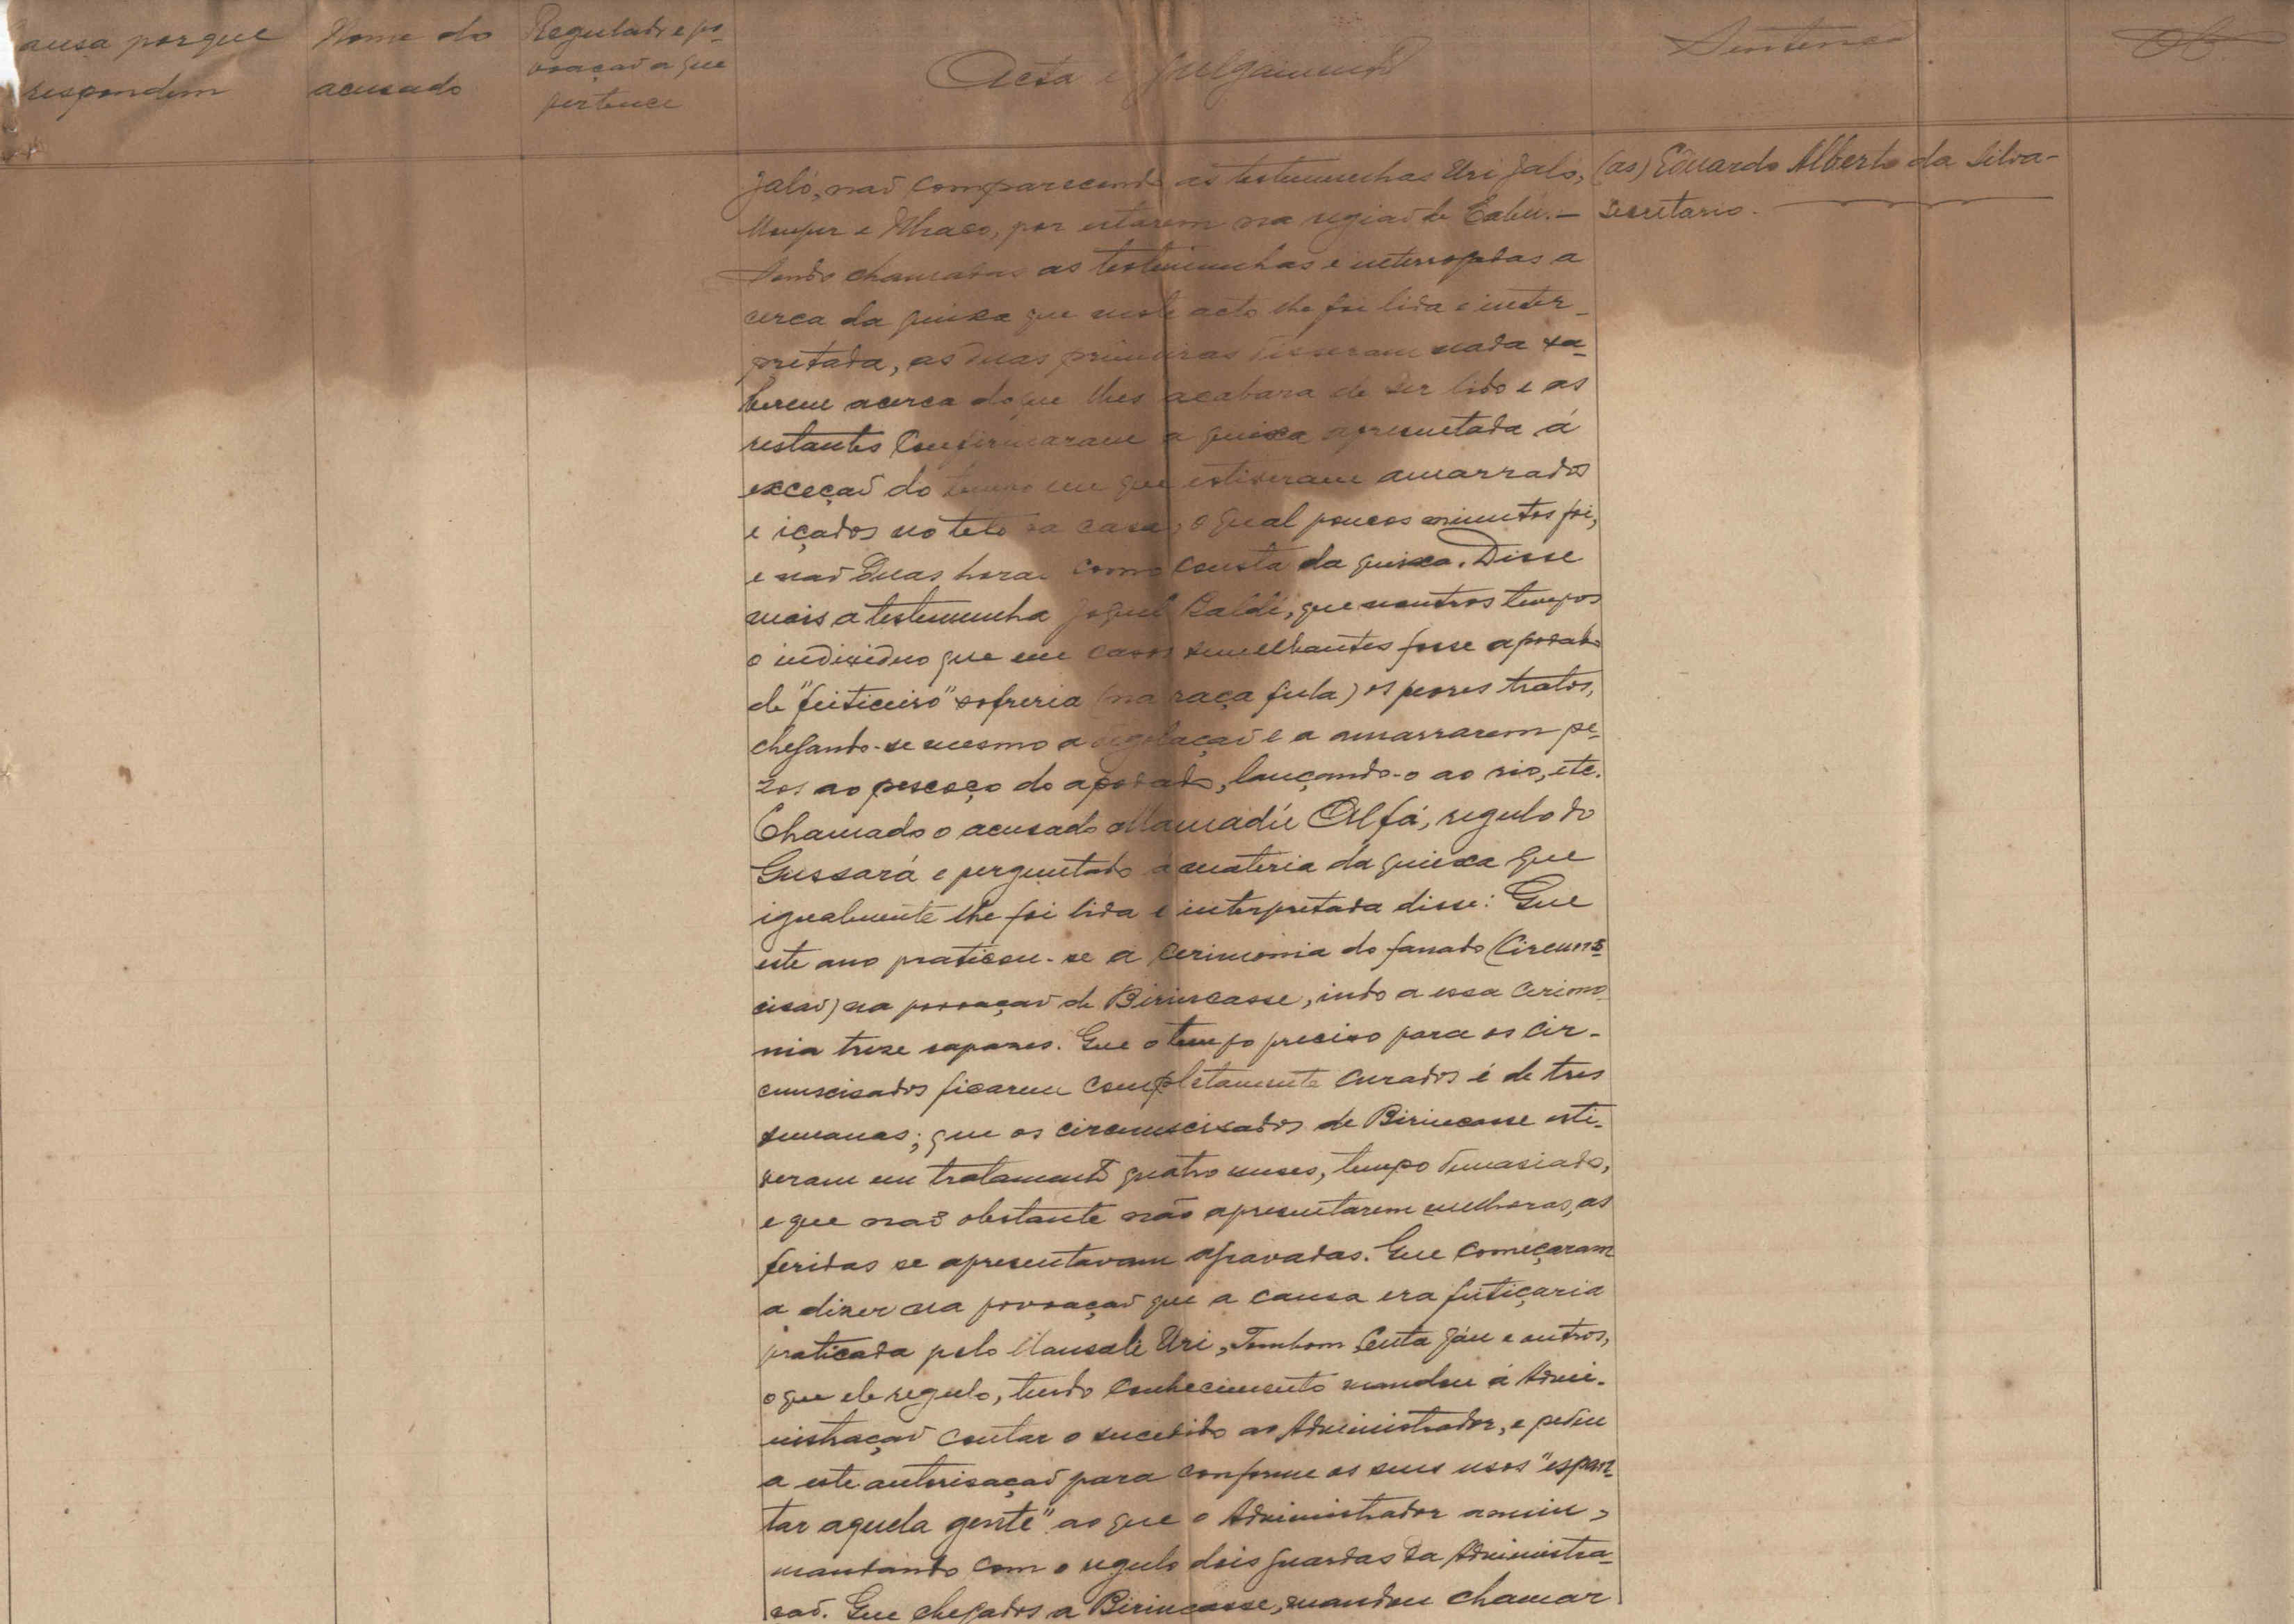 ausa porque
respondem
Nome do
acusado
Regulado e po-
voação a que
pertence
Acta e julgamento
Sentença
Jaló, não comparecendo as testemunhas Uri Jaló,
e Ithaco, por estarem na região de Cabú.—
Sendo chamadas as testemunhas e interrogadas a
cerca da queixa que neste acto lhe foi lida e inter-
pretada, as duas primeiras disseram nada sa-
berem acerca do que lhes acabara de ser lido e as
restantes confirmaram a queixa apresentada á
exceção do tempo em que estiveram amarrados
e içados no teto da casa, o qual poucos minutos foi,
e não duas horas como consta da queixa. Disse
mais a testemunha Baldé, que noutros tempos
o individuo que em casos semelhantes fosse apodado
de "feiticeiro" sofreria (na raça fula) os peores tratos,
chegando-se mesmo a degolação e a amarrarem pe-
zos ao pescoço do apodado, lançando-o ao rio, etc.
Chamado o acusado Mamadú Alfá, regulo do
Gussará e perguntado a materia da queixa que
igualmente lhe foi lida e interpretada disse: Que
este ano praticou-se a cerimonia do fanado (Circuns-
cisão) na povoação de Birincasse, indo a essa cerimo-
nia treze rapazes. Que o tempo preciso para os cir-
cunscisados ficarem completamente curados é de tres
semanas; que os circunscisados de Birincasse esti-
veram em tratamento quatro meses, tempo demasiado,
e que não obstante não apresentarem melhoras, as
feridas se apresentavam agravadas. Que começaram
a dizer na povoação que a causa era feitiçaria
praticada pelo Mansali Uri, Tombom Centa Jáu e outros,
o que ele regulo, tendo conhecimento mandou á Admi-
nistração contar o sucedido ao Administrador, e pediu
a este autorisação para conforme os seus usos "espan-
tar aquela gente" ao que o Administrador anuiu,
mandando com o regulo dois guardas da Administra-
ção. Que chegados a Birincasse, mandou chamar
(as) Eduardo Alberto da Silva-
Secretario.